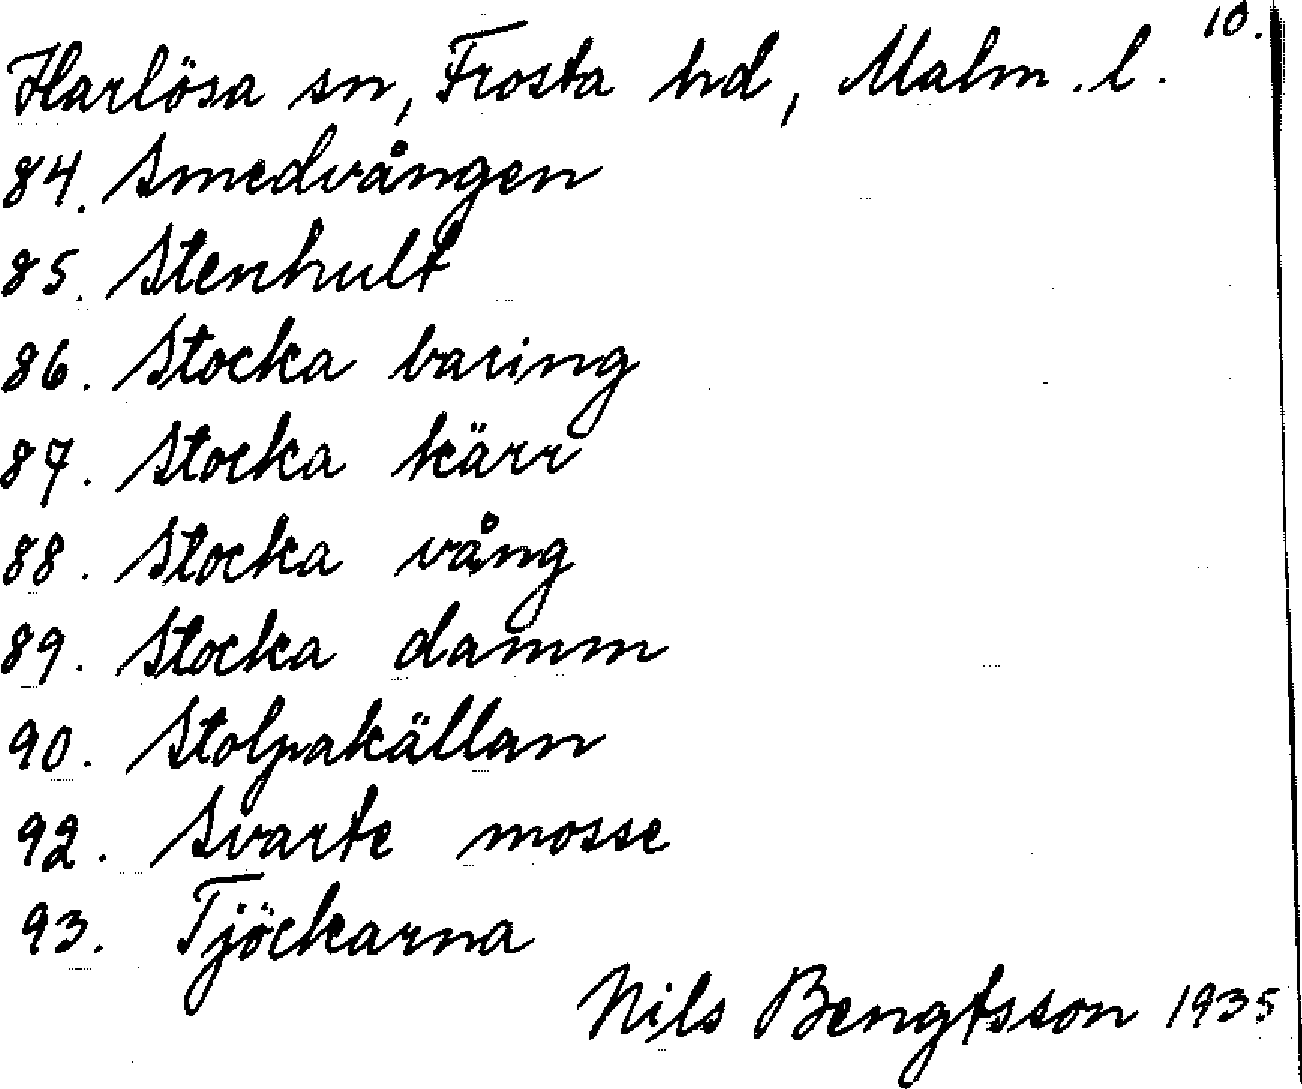 10.
Harlösa sn, Frosta hd, Malm. l.
84. Smedvången
85. Stenhult
86. Stocka baring
87. Stocka kärr
88. Stocka vång
89. Stocka damm
90. Stolpakällan
92. Svarte mosse
93. Tjöckarna
Nils Bengtsson 1935